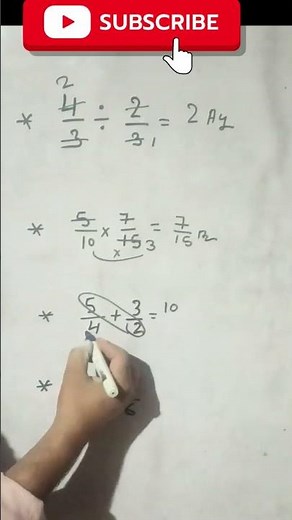 SUBSCRIBE
2
* 4/3 ÷ 2/3 1 = 2 Ay
* 5/10 × 7/15 3 = 7/15
×
* 5/4 + 3/2 = 10
*
6